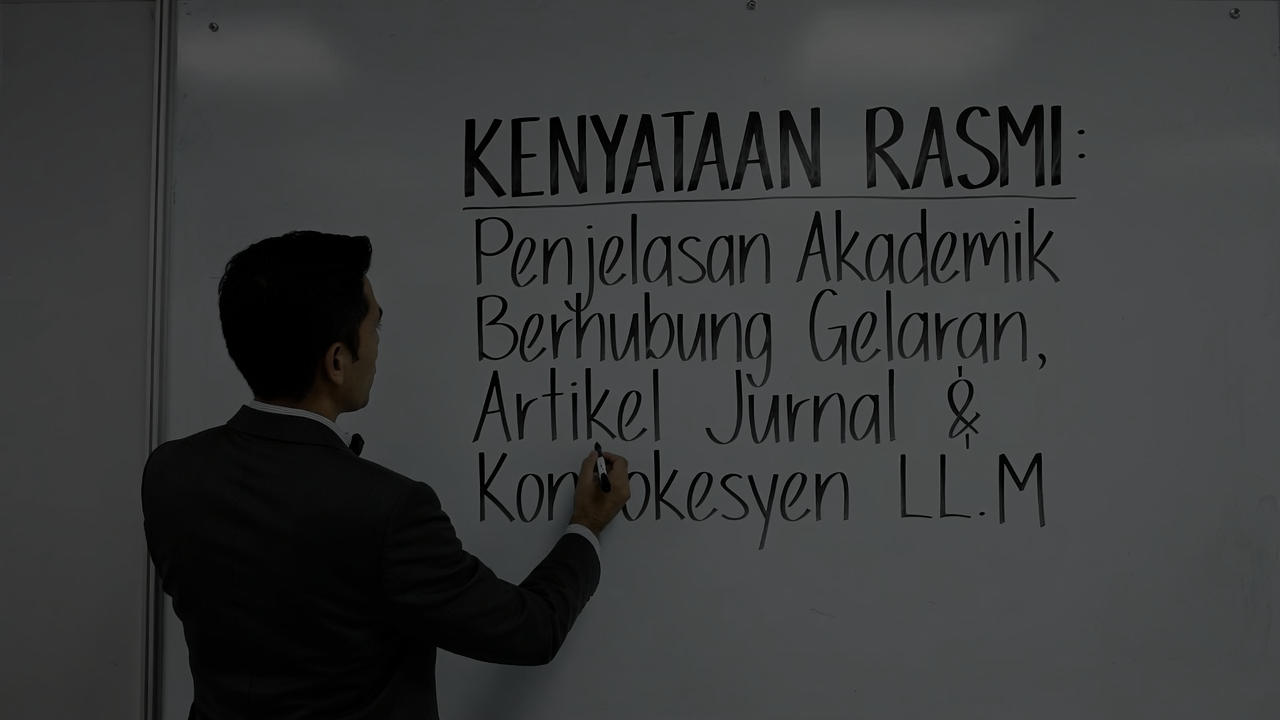 KENYATAAN RASMI:
Penjelasan Akademik
Berhubung Gelaran,
Artikel Jurnal &
Konvokesyen LL.M